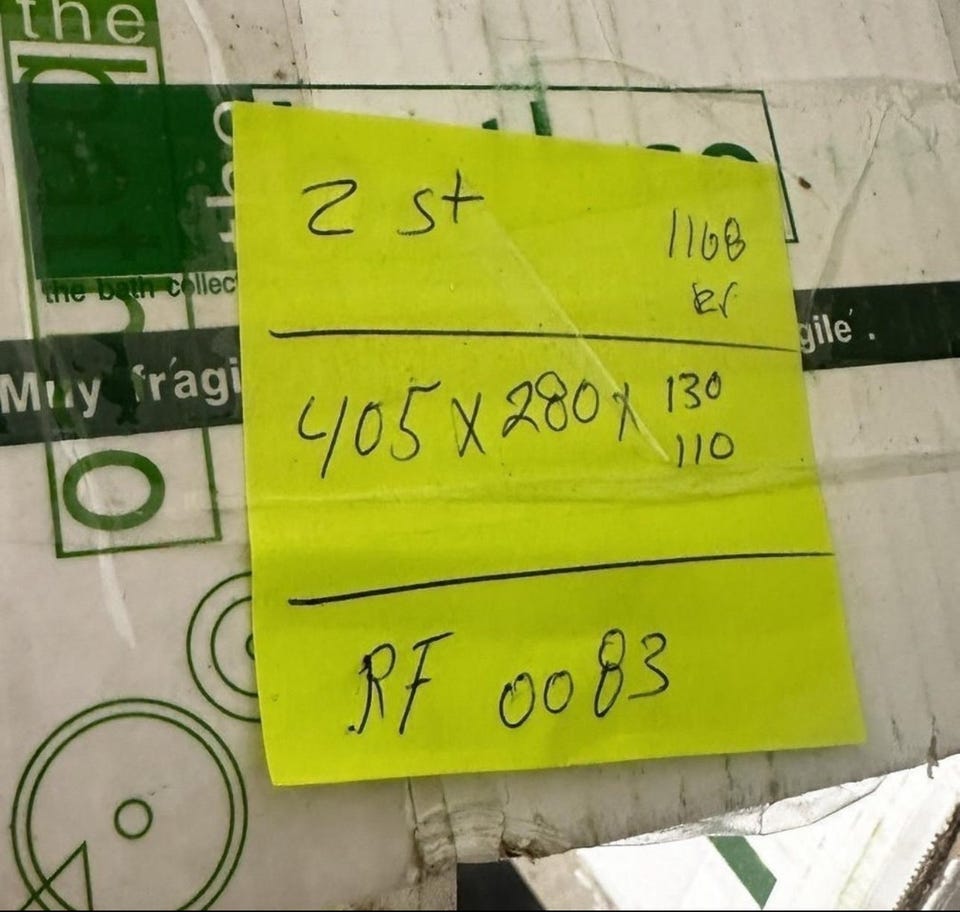 the
the bath collec
Muy frági
gilé.
2 st
1168
kr
405 x 280 x 130
110
RF 0083